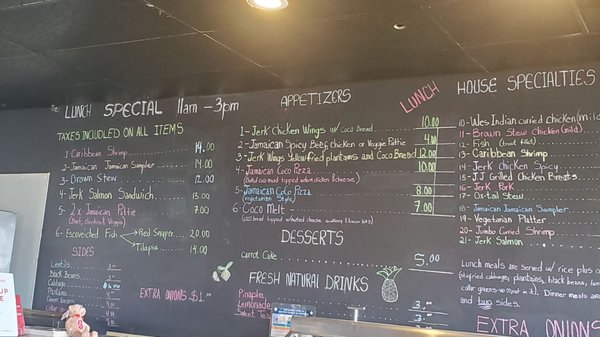 LUNCH SPECIAL 11am - 3pm
TAXES INCLUDED ON ALL ITEMS
1- Caribbean Shrimp 14.00
2- Jamaican Jamaican Sampler 14.00
3- Brown Stew 12.00
4- Jerk Salmon Sandwich 13.00
5- 2x Jamaican Pattie 7.00
(Beef, chicken & Veggie)
6- Escoveiched Fish Red Snapper 20.00
Tilapia 14.00
SIDES
Lentils
Black Beans
Cabbage
Plantains
EXTRA ONIONS $1.00
APPETIZERS
LUNCH
1- Jerk Chicken Wings w/ Coco Bread 10.00
2- Jamaican Spicy Beef, chicken or Veggie Pattie 4.00
3- Jerk Wings Yellow fried plantains and Coco Bread 12.00
4- Jamaican Coco Pizza 10.00
5- Jamaican Coco Pizza 8.00
(vegetarian Style)
6- Coco Melt 7.00
DESSERTS
Carrot Cake 5.00
FRESH NATURAL DRINKS
Pinaple 3.00
Lemonade
Sweet Tea 3.00
HOUSE SPECIALTIES
10- Wes Indian curried chicken (mild
11- Brown Stew chicken (mild)
12- Fish
13- Caribbean Shrimp
14- Jerk Chicken Spicy
15- JJ Grilled Chicken Breats
16- Jerk Pork
17- Ox-tail Stew
18- Jamaican Jamaican Sampler
19- Vegetarian Patter
20- Jumbo Curried Shrimp
21- Jerk Salmon
Lunch meals are served w/ rice plus o
(stirfried cabbage, plantains, black beans, len
collar greens
Dinner meals are
and two sides.
EXTRA ONIONS